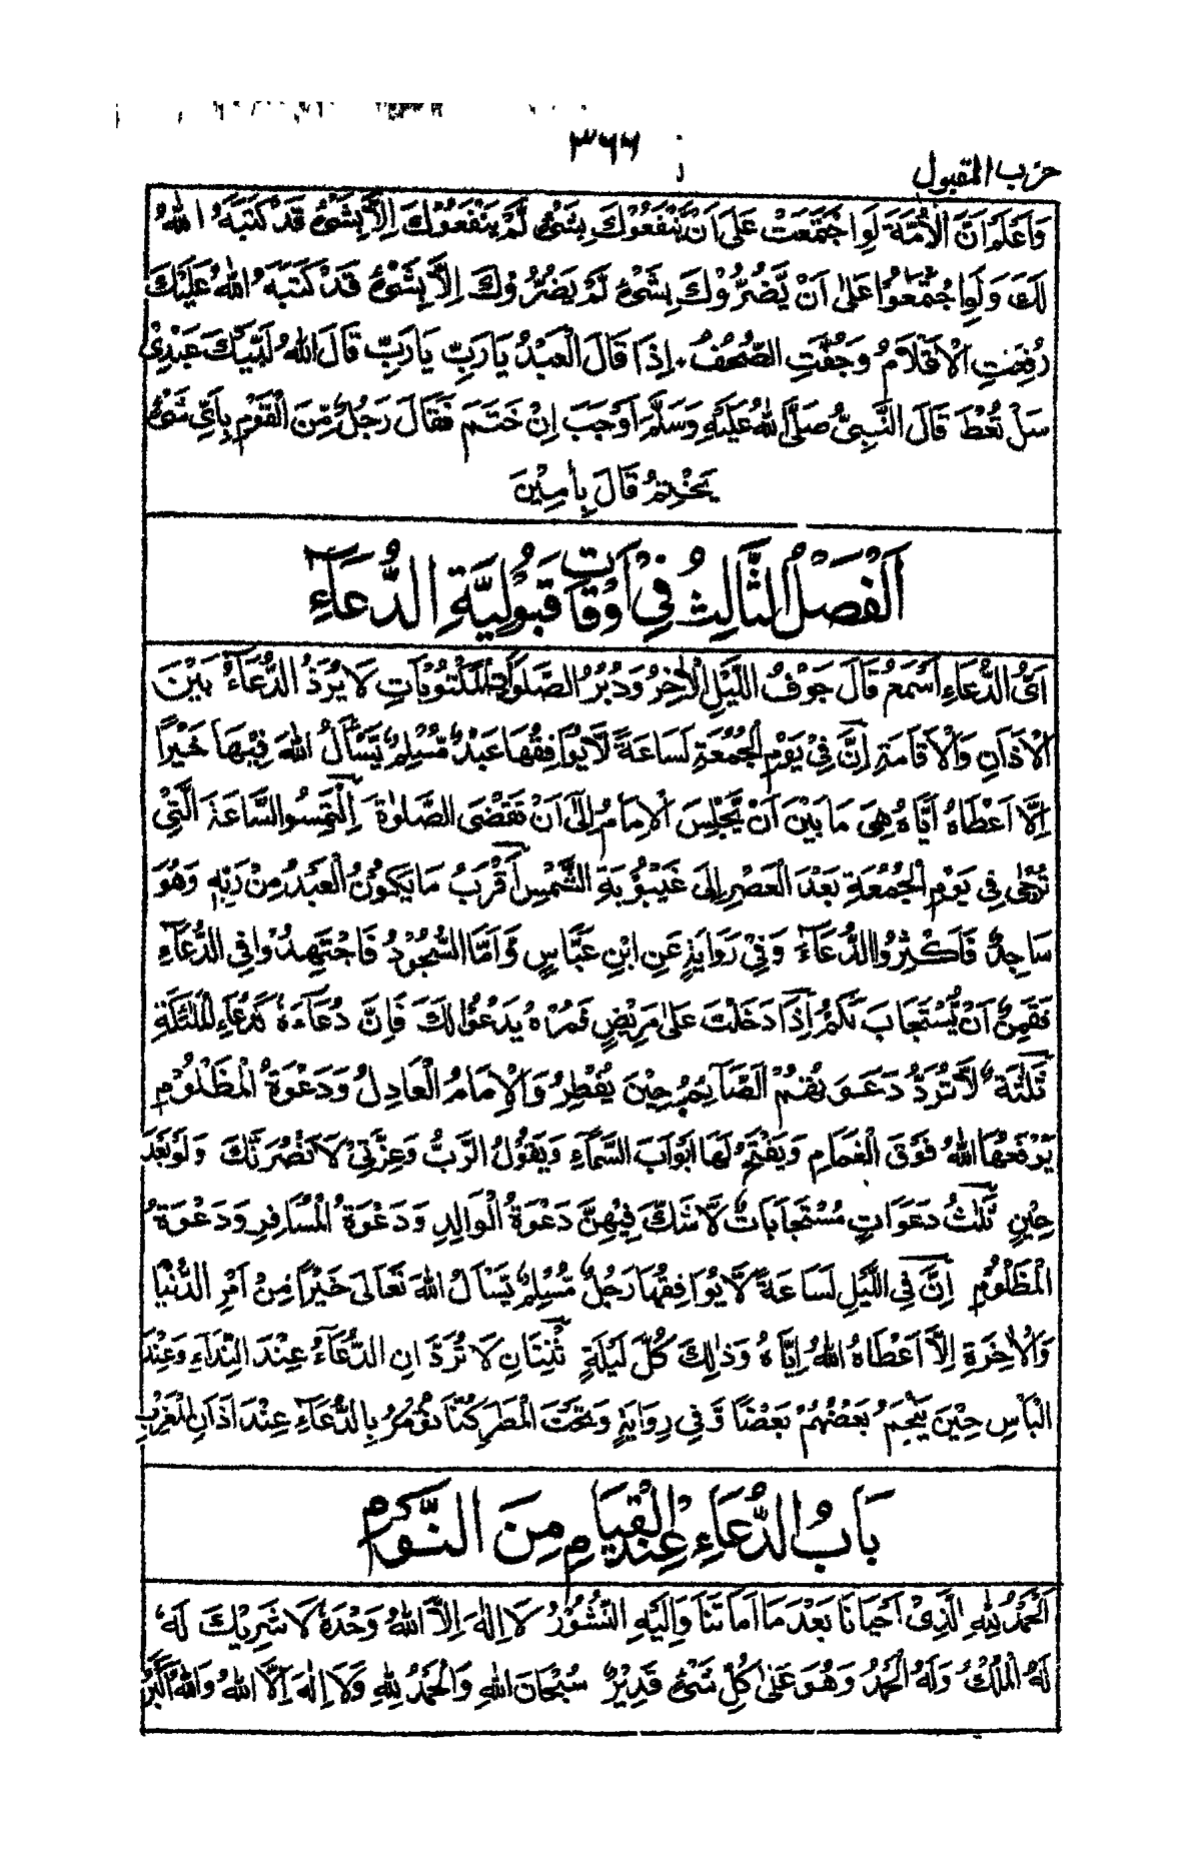 ۳۶۶
حزب المقبول
وَاعْلَمْ اَنَّ الْاُمَّةَ لَوِ اجْتَمَعَتْ عَلٰى اَنْ يَّنْفَعُوْكَ بِشَيْءٍ لَّمْ يَنْفَعُوْكَ اِلَّا بِشَيْءٍ قَدْ كَتَبَهُ اللّٰهُ
لَكَ وَلَوِ اجْتَمَعُوْا عَلٰى اَنْ يَّضُرُّوْكَ بِشَيْءٍ لَّمْ يَضُرُّوْكَ اِلَّا بِشَيْءٍ قَدْ كَتَبَهُ اللّٰهُ عَلَيْكَ
رُفِعَتِ الْاَقْلَامُ وَجُفَّتِ الصُّحُفُ۔ اِذَا قَالَ الْعَبْدُ يَا رَبِّ يَا رَبِّ قَالَ اللّٰهُ لَبَّيْكَ عَبْدِيْ
سَلْ تُعْطَ قَالَ النَّبِيُّ صَلَّى اللّٰهُ عَلَيْهِ وَسَلَّمَ اَوْجَبَ اِنْ خَتَمَ فَقَالَ رَجُلٌ مِّنَ الْقَوْمِ بِاَيِّ شَيْءٍ
يَخْتِمُ قَالَ بِاٰمِيْنَ
اَلْفَصْلُ الثَّالِثُ فِيْ اَوْقَاتِ قَبُوْلِيَّةِ الدُّعَآءِ
اَيُّ الدُّعَاءِ اَسْمَعُ قَالَ جَوْفُ اللَّيْلِ الْاٰخِرُ وَدُبُرُ الصَّلَوَاتِ الْمَكْتُوْبَاتِ لَا يُرَدُّ الدُّعَآءُ بَيْنَ
الْاَذَانِ وَالْاِقَامَةِ اِنَّ فِيْ يَوْمِ الْجُمُعَةِ لَسَاعَةً لَّا يُوَافِقُهَا عَبْدٌ مُّسْلِمٌ يَّسْاَلُ اللّٰهَ فِيْهَا خَيْرًا
اِلَّا اَعْطَاهُ اِيَّاهُ هِيَ مَا بَيْنَ اَنْ يَّجْلِسَ الْاِمَامُ اِلٰى اَنْ تُقْضَى الصَّلٰوةُ اِلْتَمِسُوا السَّاعَةَ الَّتِيْ
تُرْجٰى فِيْ يَوْمِ الْجُمُعَةِ بَعْدَ الْعَصْرِ اِلٰى غَيْبُوْبَةِ الشَّمْسِ اَقْرَبُ مَا يَكُوْنُ الْعَبْدُ مِنْ رَبِّهٖ وَهُوَ
سَاجِدٌ فَاَكْثِرُوا الدُّعَآءَ وَفِيْ رَوَايَةٍ عَنِ ابْنِ عَبَّاسٍ وَّاَمَّا السُّجُوْدُ فَاجْتَهِدُوْا فِي الدُّعَآءِ
فَقَمِنٌ اَنْ يُّسْتَجَابَ لَكُمْ اِذَا دَخَلْتَ عَلٰى مَرِيْضٍ فَمُرْهُ يَدْعُوْ لَكَ فَاِنَّ دُعَآءَهٗ كَدُعَآءِ الْمَلٰئِكَةِ
ثَلٰثَةٌ لَّا تُرَدُّ دَعْوَتُهُمْ الصَّآئِمُ حِيْنَ يُفْطِرُ وَالْاِمَامُ الْعَادِلُ وَدَعْوَةُ الْمَظْلُوْمِ
يَرْفَعُهَا اللّٰهُ فَوْقَ الْغَمَامِ وَيَفْتَحُ لَهَا اَبْوَابَ السَّمَآءِ وَيَقُوْلُ الرَّبُّ وَعِزَّتِيْ لَاَنْصُرَنَّكَ وَلَوْ بَعْدَ
حِيْنٍ ثَلٰثُ دَعَوَاتٍ مُسْتَجَابَاتٌ لَّا شَكَّ فِيْهِنَّ دَعْوَةُ الْوَالِدِ وَدَعْوَةُ الْمُسَافِرِ وَدَعْوَةُ
الْمَظْلُوْمِ اِنَّ فِي اللَّيْلِ لَسَاعَةً لَّا يُوَافِقُهَا رَجُلٌ مُّسْلِمٌ يَّسْاَلُ اللّٰهَ تَعَالٰى خَيْرًا مِنْ اَمْرِ الدُّنْيَا
وَالْاٰخِرَةِ اِلَّا اَعْطَاهُ اللّٰهُ اِيَّاهُ وَذٰلِكَ كُلَّ لَيْلَةٍ ثِنْتَانِ لَا تُرَدَّانِ الدُّعَآءُ عِنْدَ النِّدَاءِ وَعِنْدَ
الْبَاْسِ حِيْنَ يَلْحَمُ بَعْضُهُمْ بَعْضًا وَّفِيْ رِوَايَةٍ وَتَحْتَ الْمَطَرِ كُنَّا نُؤْمَرُ بِالدُّعَآءِ عِنْدَ اَذَانِ الْمَغْرِبِ
بَابُ الدُّعَاءِ عِنْدَ الْقِيَامِ مِنَ النَّوْمِ
اَلْحَمْدُ لِلّٰهِ الَّذِيْ اَحْيَانَا بَعْدَ مَا اَمَاتَنَا وَاِلَيْهِ النُّشُوْرُ لَا اِلٰهَ اِلَّا اللّٰهُ وَحْدَهٗ لَا شَرِيْكَ لَهٗ
لَهُ الْمُلْكُ وَلَهُ الْحَمْدُ وَهُوَ عَلٰى كُلِّ شَيْءٍ قَدِيْرٌ سُبْحَانَ اللّٰهِ وَالْحَمْدُ لِلّٰهِ وَلَا اِلٰهَ اِلَّا اللّٰهُ وَاللّٰهُ اَكْبَرُ